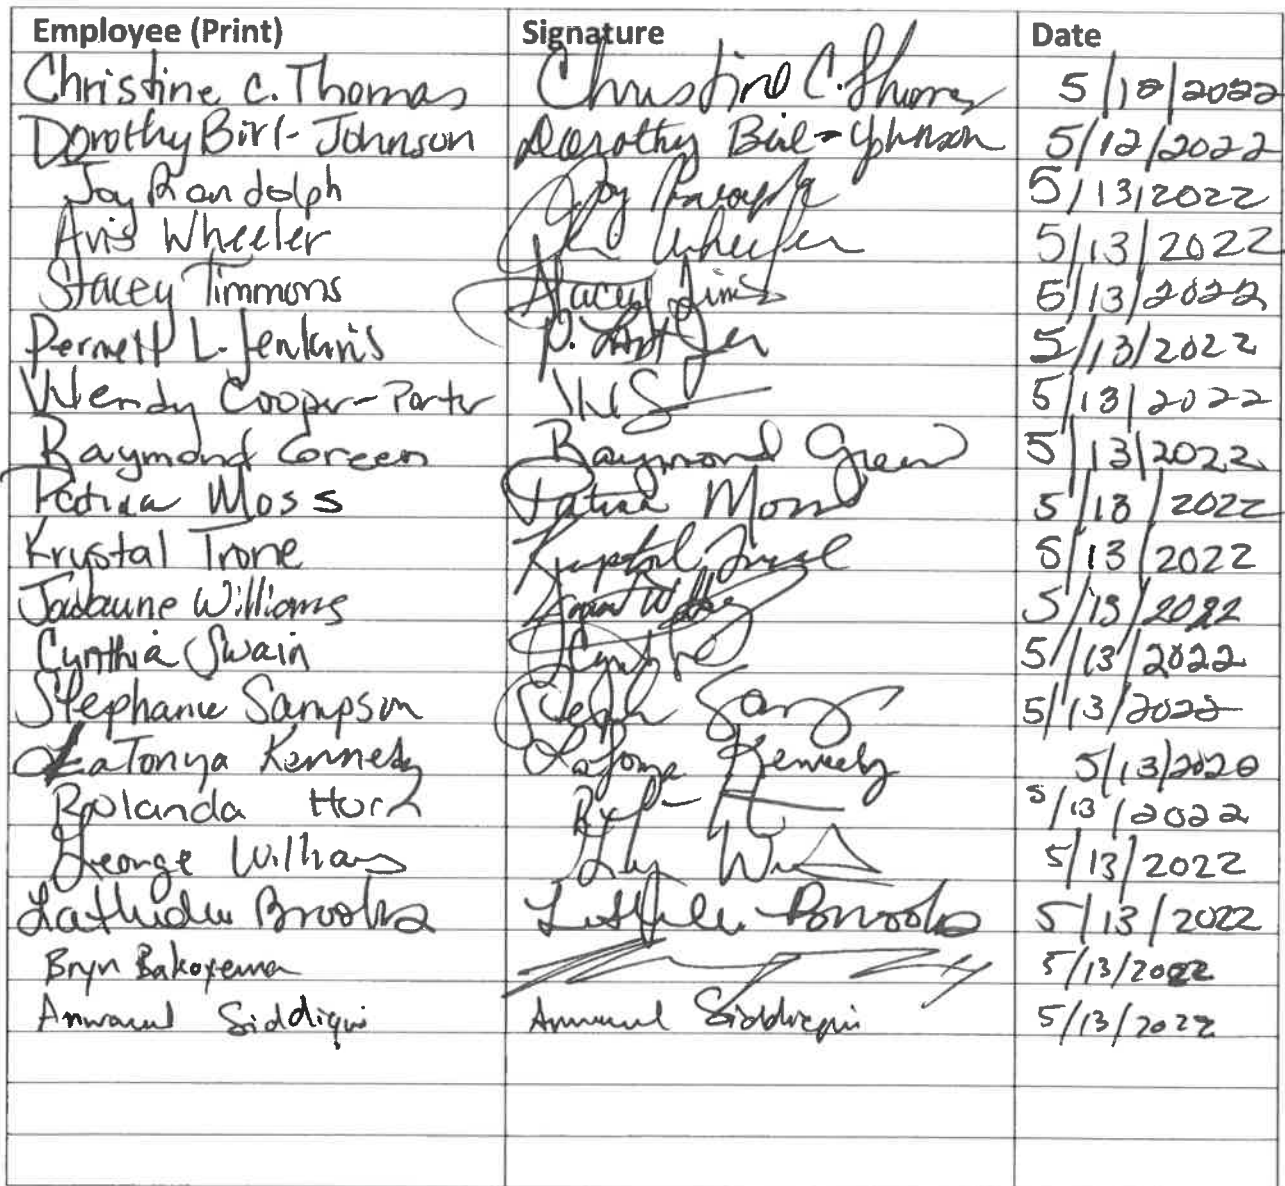 Employee (Print) Signature Date
Christine C. Thomas Christine C. Thomas 5/12/2022
Dorothy Birl-Johnson Dorothy Birl-Johnson 5/12/2022
Joy Randolph Joy 5/13/2022
Avis Wheeler Wheeler 5/13/2022
Stacey Timmons Stacey 5/13/2022
Pernell L. Jenkins P. 5/13/2022
Wendy Cooper-Porter 5/13/2022
Raymond Green Raymond Green 5/13/2022
Patina Moss Moss 5/13/2022
Krystal Trone Krystal 5/13/2022
Williams 5/13/2022
Cynthia Swain 5/13/2022
Stephanie Sampson Steph 5/13/2022
LaTonya Kennedy LaTonya Kennedy 5/13/2020
Rolanda 5/13/2022
George Williams 5/13/2022
Brooks Brooks 5/13/2022
Bryn 5/13/2022
Siddiqui Siddiqui 5/13/2022